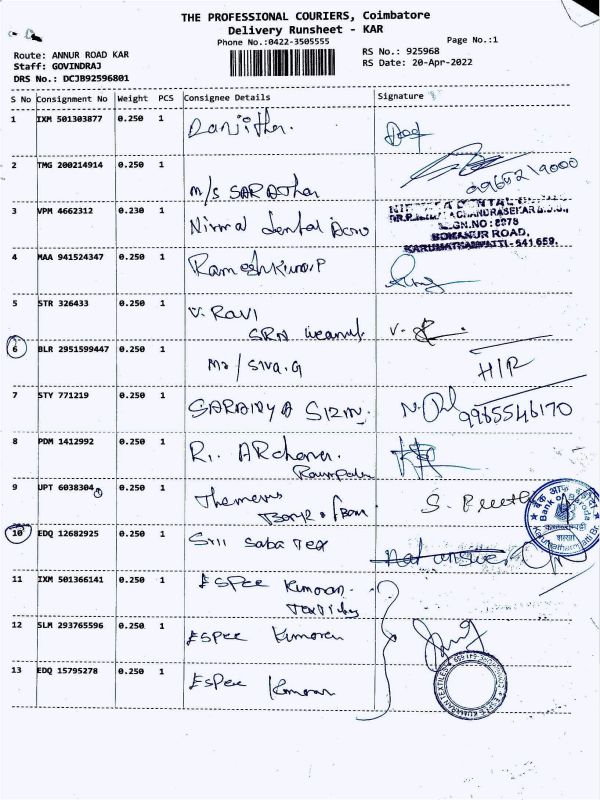 THE PROFESSIONAL COURIERS, Coimbatore
Delivery Runsheet - KAR
Phone No.:0422-3505555
Page No.:1
Route: ANNUR ROAD KAR
Staff: GOVINDRAJ
DRS No.: DCJB92596801
RS No.: 925968
RS Date: 20-Apr-2022
S No Consignment No Weight PCS Consignee Details Signature
1 IXM 501303877 0.250 1 Ranjitha.
2 TMG 200214914 0.250 1
M/s
3 VPM 4662312 0.230 1 Nirmal dental
BOMANUR ROAD,
KARUMATHAMPATTI - 641 659.
4 MAA 941524347 0.250 1 Rameshkumar P
5 STR 326433 0.250 1 V. Ravi
SRN
6 BLR 2951599447 0.250 1 Mr/ Siva.G
H/R
7 STY 771219 0.250 1
9965546170
8 PDM 1412992 0.250 1 R. ARchana.
9 UPT 6038304 0.250 1
S.
बैंक ऑफ बड़ौदा
Bank of Baroda
10 EDQ 12682925 0.250 1 Sri Saba Tex
not answer
11 IXM 501366141 0.250 1 ESPee Kumaran
Textiles
12 SLM 293765596 0.250 1 ESPee Kumaran
13 EDQ 15795278 0.250 1 ESPee Kumaran